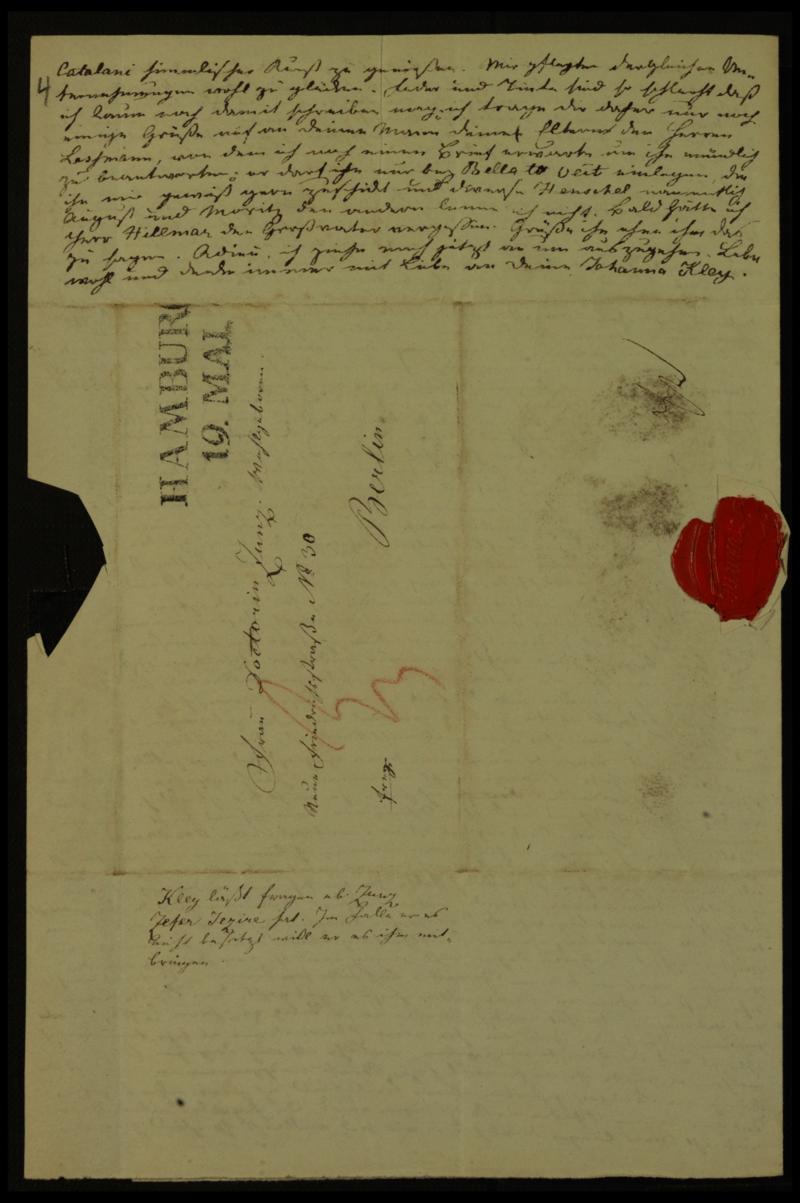 4
Catalani himmlischer Kunst zu genießen. Mir pflegten dergleichen Un-
ternehmungen wohl zu glücken. Feder und Tinte sind so schlecht daß
ich kaum noch damit schreiben mag, ich trage dir daher nur noch
einige Grüße auf an deinen Mann deine Eltern den Herren
Lessmann, von dem ich noch einen Brief erwarte um ihn mündlich
zu beantworten, er darf ihn nur bey Bella Veit einlegen, die
ihn mir gewiß gern zuschickt und diverse Henschel namentlich
August und Moritz den andern kenne ich nicht. Bald hätte ich
Herr Hillmar den Großvater vergessen. Grüße ihn ohne ihm das
zu sagen. Adieu, ich ziehe mich jetzt an um auszugehen. Lebe
wohl und denke immer mit Liebe an deine Johanna Kley.
HAMBUR
19. MAI
Frau Doctorin Zunz. Wohlgeboren.
Neue Friedrichsstraße No 30
Berlin
franz
Kley läßt fragen ob Zunz
Jezira hat. Im Falle er es
nicht besitzt will er es ihm mit-
bringen.